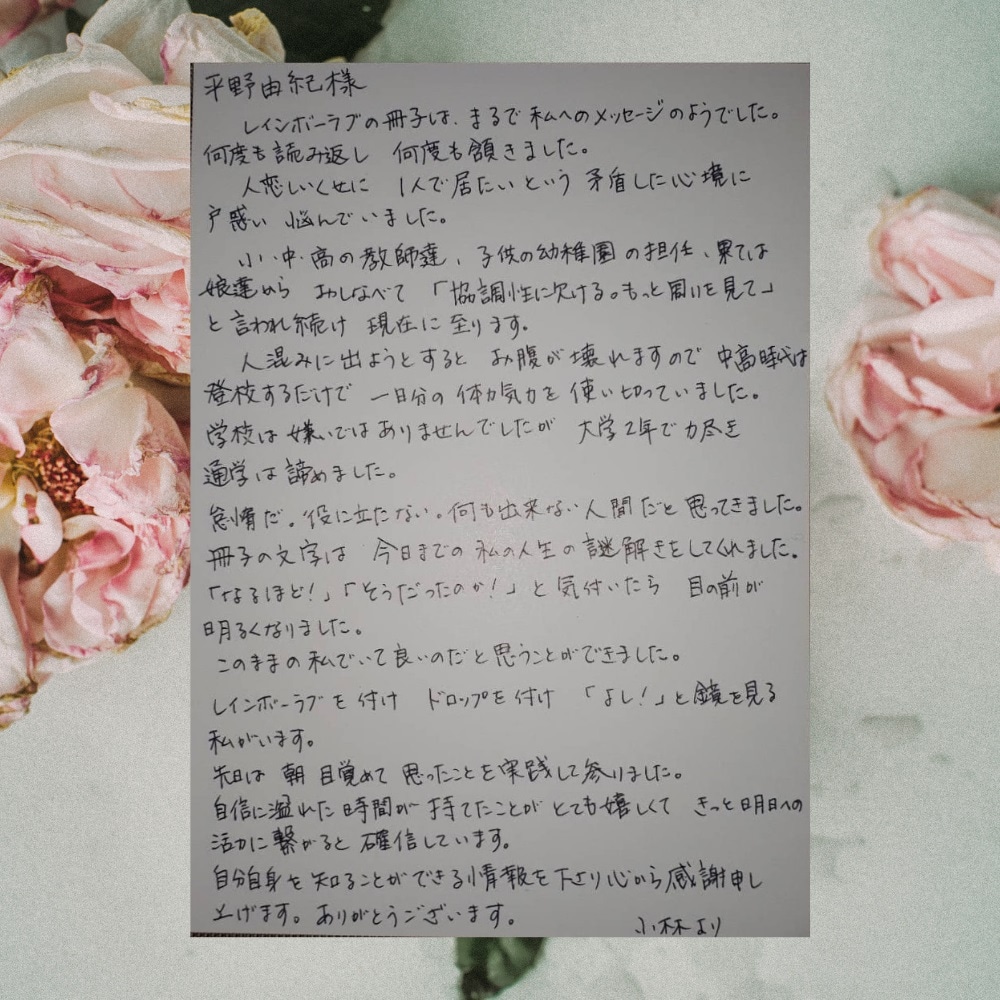 平野由紀様
レインボーラブの冊子は、まるで私へのメッセージのようでした。
何度も読み返し 何度も頷きました。
人恋しいくせに 1人で居たいという矛盾した心境に
戸惑い 悩んでいました。
小・中・高の教師達、子供の幼稚園の担任、果ては
娘達から おしなべて 「協調性に欠ける。もっと周りを見て」
と言われ続け 現在に至ります。
人混みに出ようとすると お腹が壊れますので 中高時代は
登校するだけで 一日分の体力気力を使い切っていました。
学校は嫌いではありませんでしたが 大学2年で力尽き
通学は諦めました。
怠惰だ。役に立たない。何も出来ない人間だと思ってきました。
冊子の文字は 今日までの私の人生の謎解きをしてくれました。
「なるほど!」「そうだったのか!」と気付いたら 目の前が
明るくなりました。
このままの私でいて良いのだと思うことができました。
レインボーラブを付け ドロップを付け 「よし!」と鏡を見る
私がいます。
先日は 朝 目覚めて 思ったことを実践して参りました。
自信に溢れた時間が持てたことがとても嬉しくて きっと明日への
活力に繋がると確信しています。
自分自身を知ることができる情報を下さり心から感謝申し
上げます。ありがとうございます。
小林より